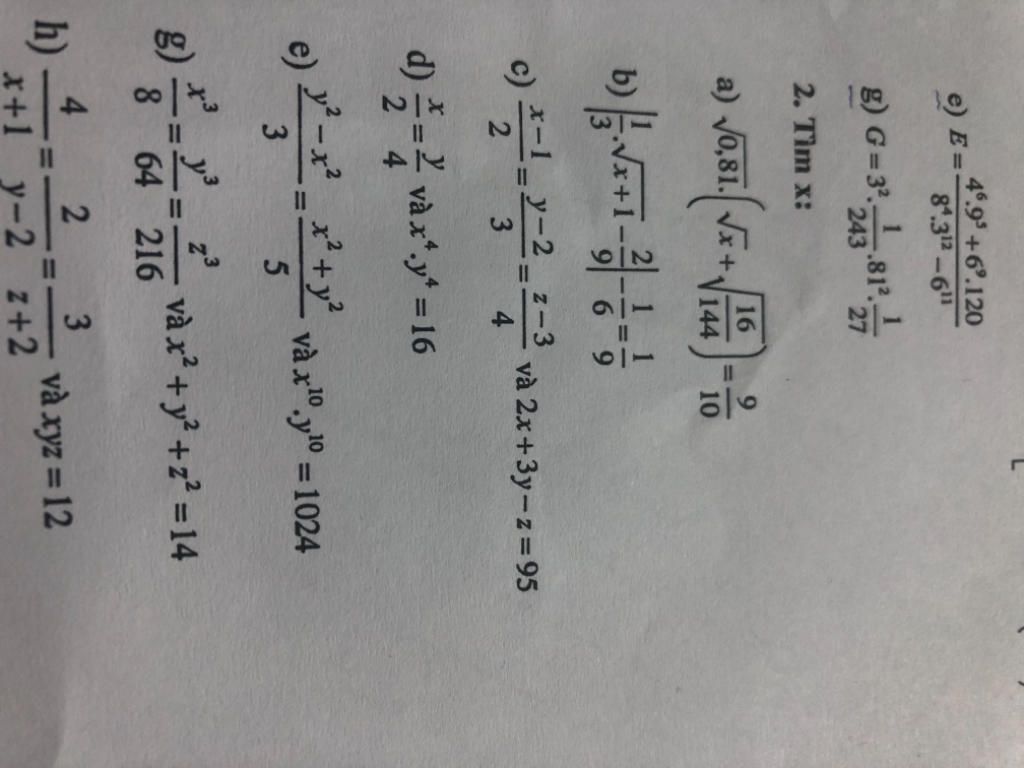 e) E = \frac{4^6.9^5 + 6^9.120}{8^4.3^{12} - 6^{11}}
g) G = 3^2.\frac{1}{243}.81^2.\frac{1}{27}
2. Tìm x:
a) \sqrt{0,81}.\left(\sqrt{x} + \sqrt{\frac{16}{144}}\right) = \frac{9}{10}
b) \left|\frac{1}{3}.\sqrt{x+1} - \frac{2}{9}\right| - \frac{1}{6} = \frac{1}{9}
c) \frac{x-1}{2} = \frac{y-2}{3} = \frac{z-3}{4} và 2x + 3y - z = 95
d) \frac{x}{2} = \frac{y}{4} và x^4.y^4 = 16
e) \frac{y^2 - x^2}{3} = \frac{x^2 + y^2}{5} và x^{10}.y^{10} = 1024
g) \frac{x^3}{8} = \frac{y^3}{64} = \frac{z^3}{216} và x^2 + y^2 + z^2 = 14
h) \frac{4}{x+1} = \frac{2}{y-2} = \frac{3}{z+2} và xyz = 12